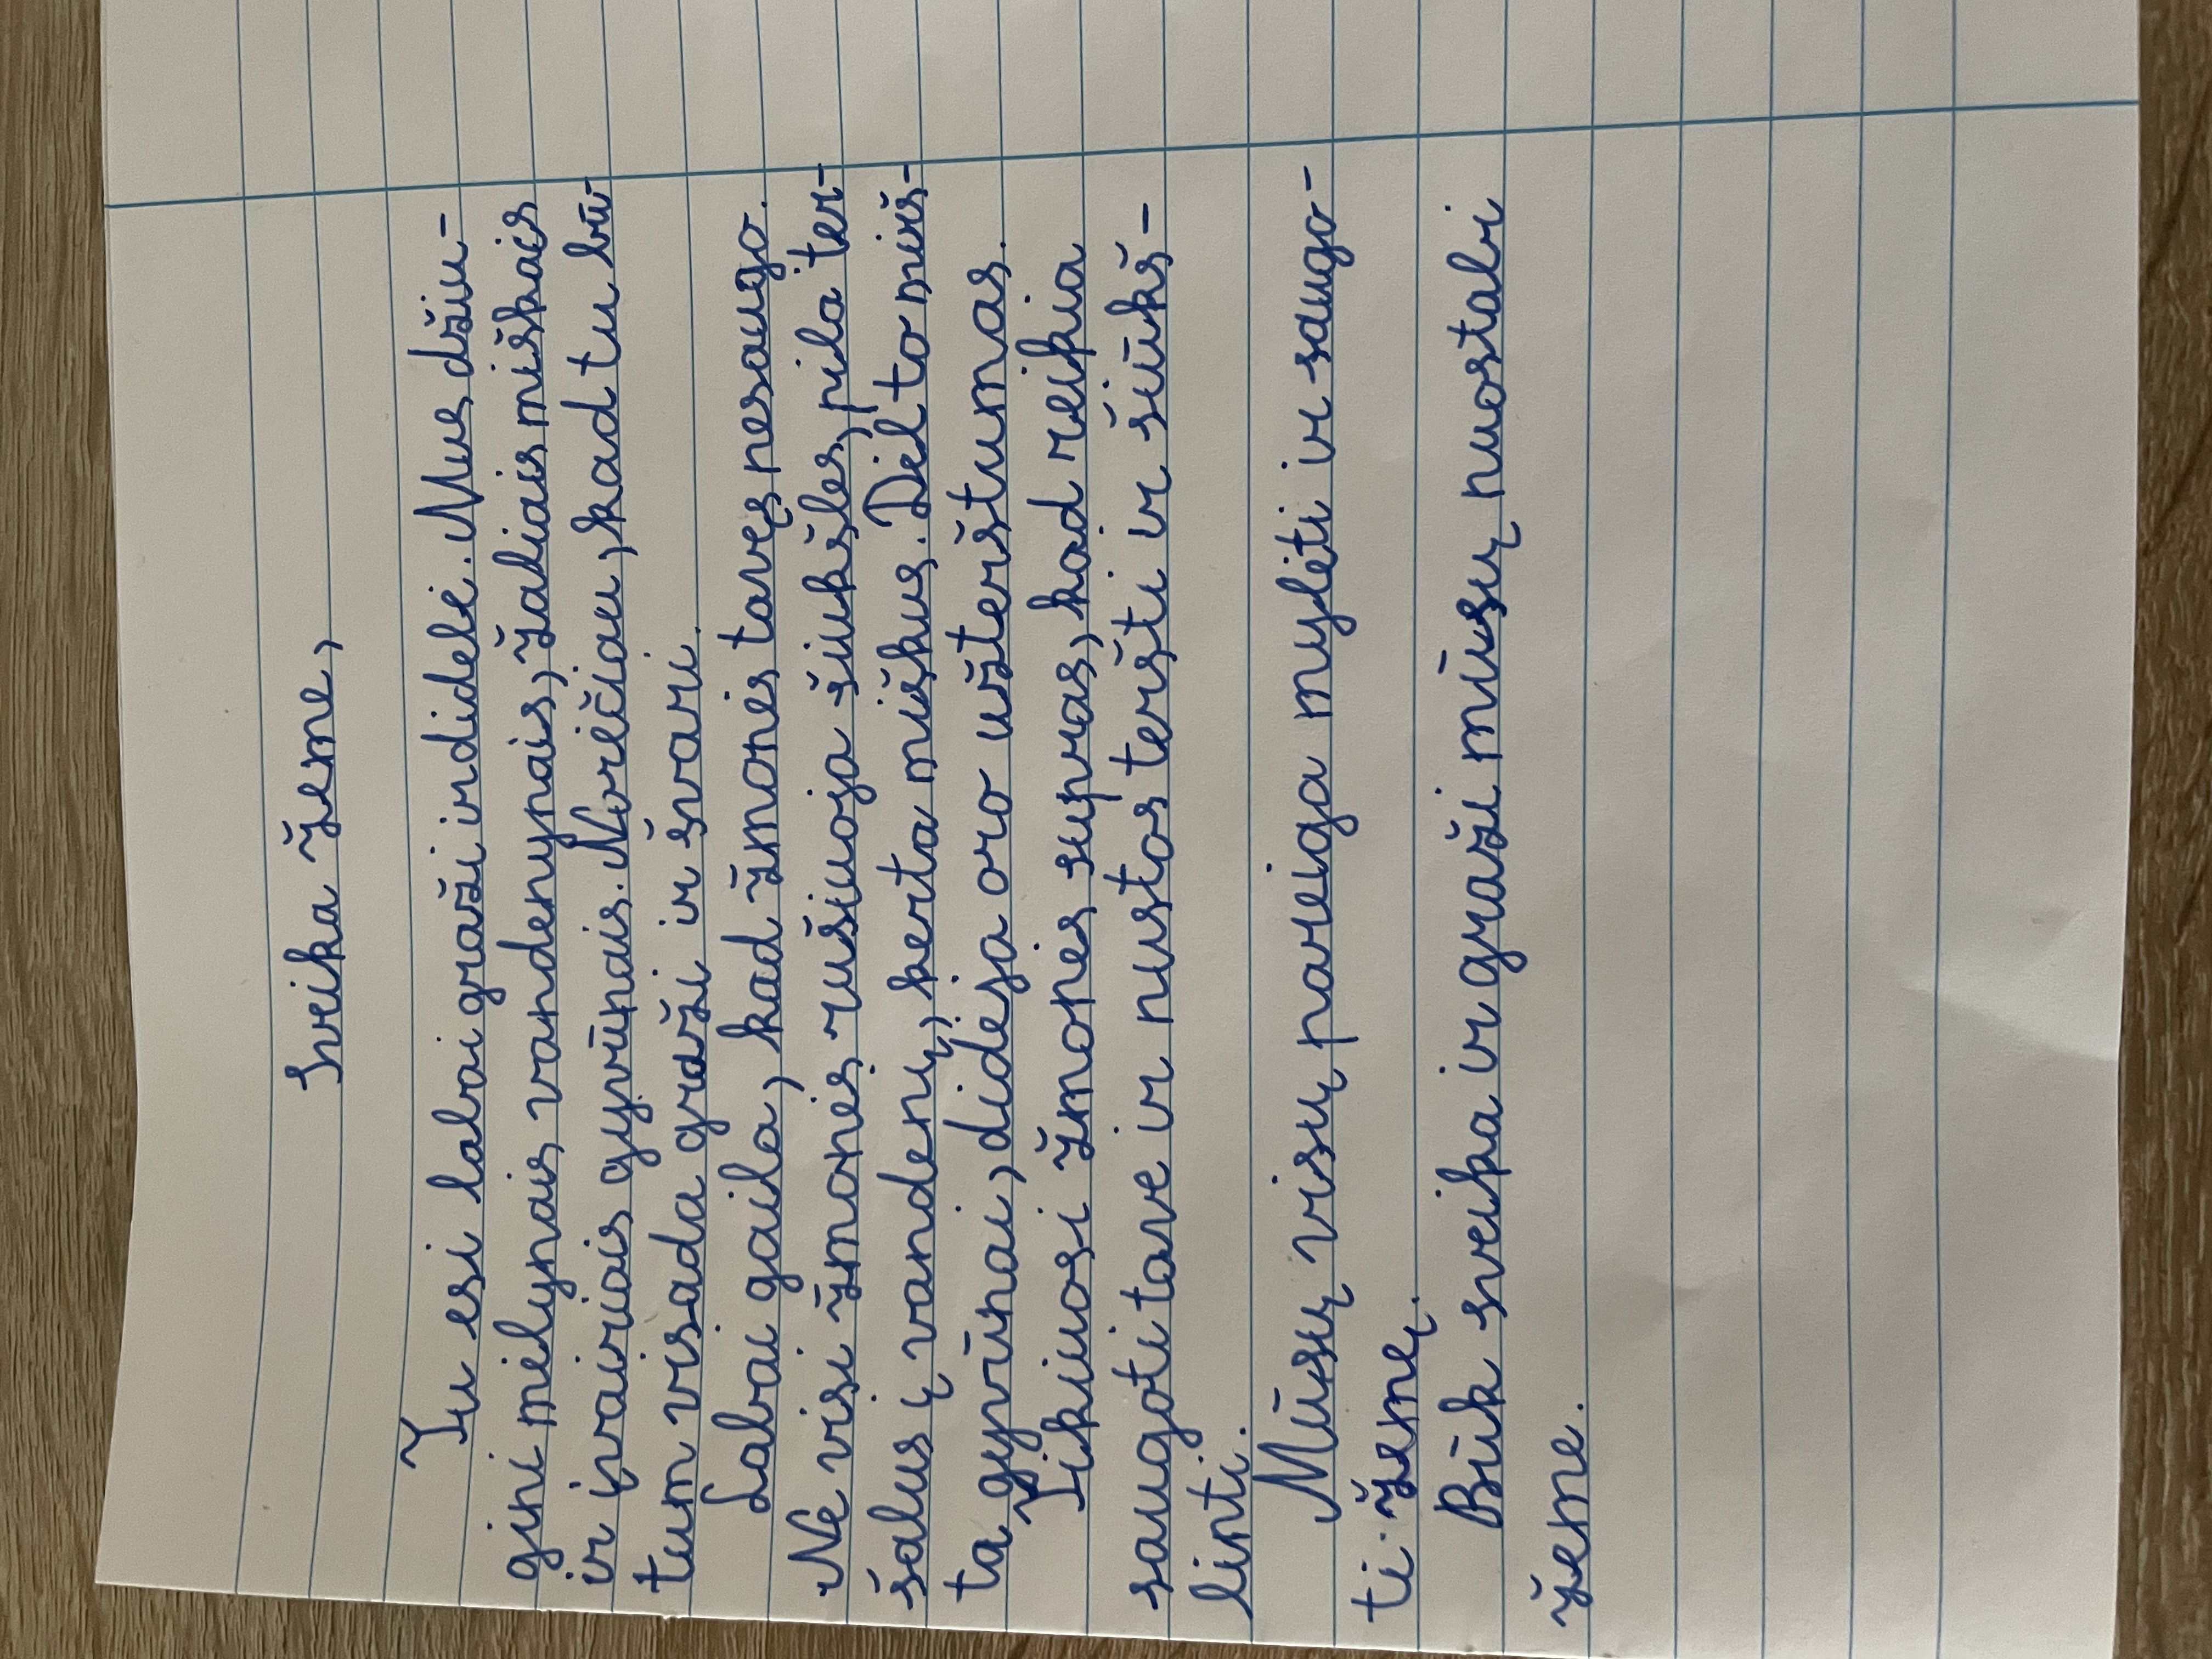 Sveika žeme,
Tu esi labai graži ir didelė. Mus džiu-
gini mėlynais vandenynais, žaliais miškais
ir įvairiais gyvūnais. Norėčiau, kad tu bū-
tum visada graži ir švari.
Labai gaila, kad žmonės tavęs nesaugo.
Ne visi žmonės rušiuoja šiukšles, pila ter-
šalus į vandenį, kerta miškus. Dėl to mirš-
ta gyvūnai, didėja oro užterštumas.
Tikiuosi žmonės supras, kad reikia
saugoti tave ir nustos teršti ir šiūkš-
linti.
Mūsų visų pareiga mylėti ir saugo-
ti žemę.
Būk sveika ir graži mūsų nuostabi
žeme.